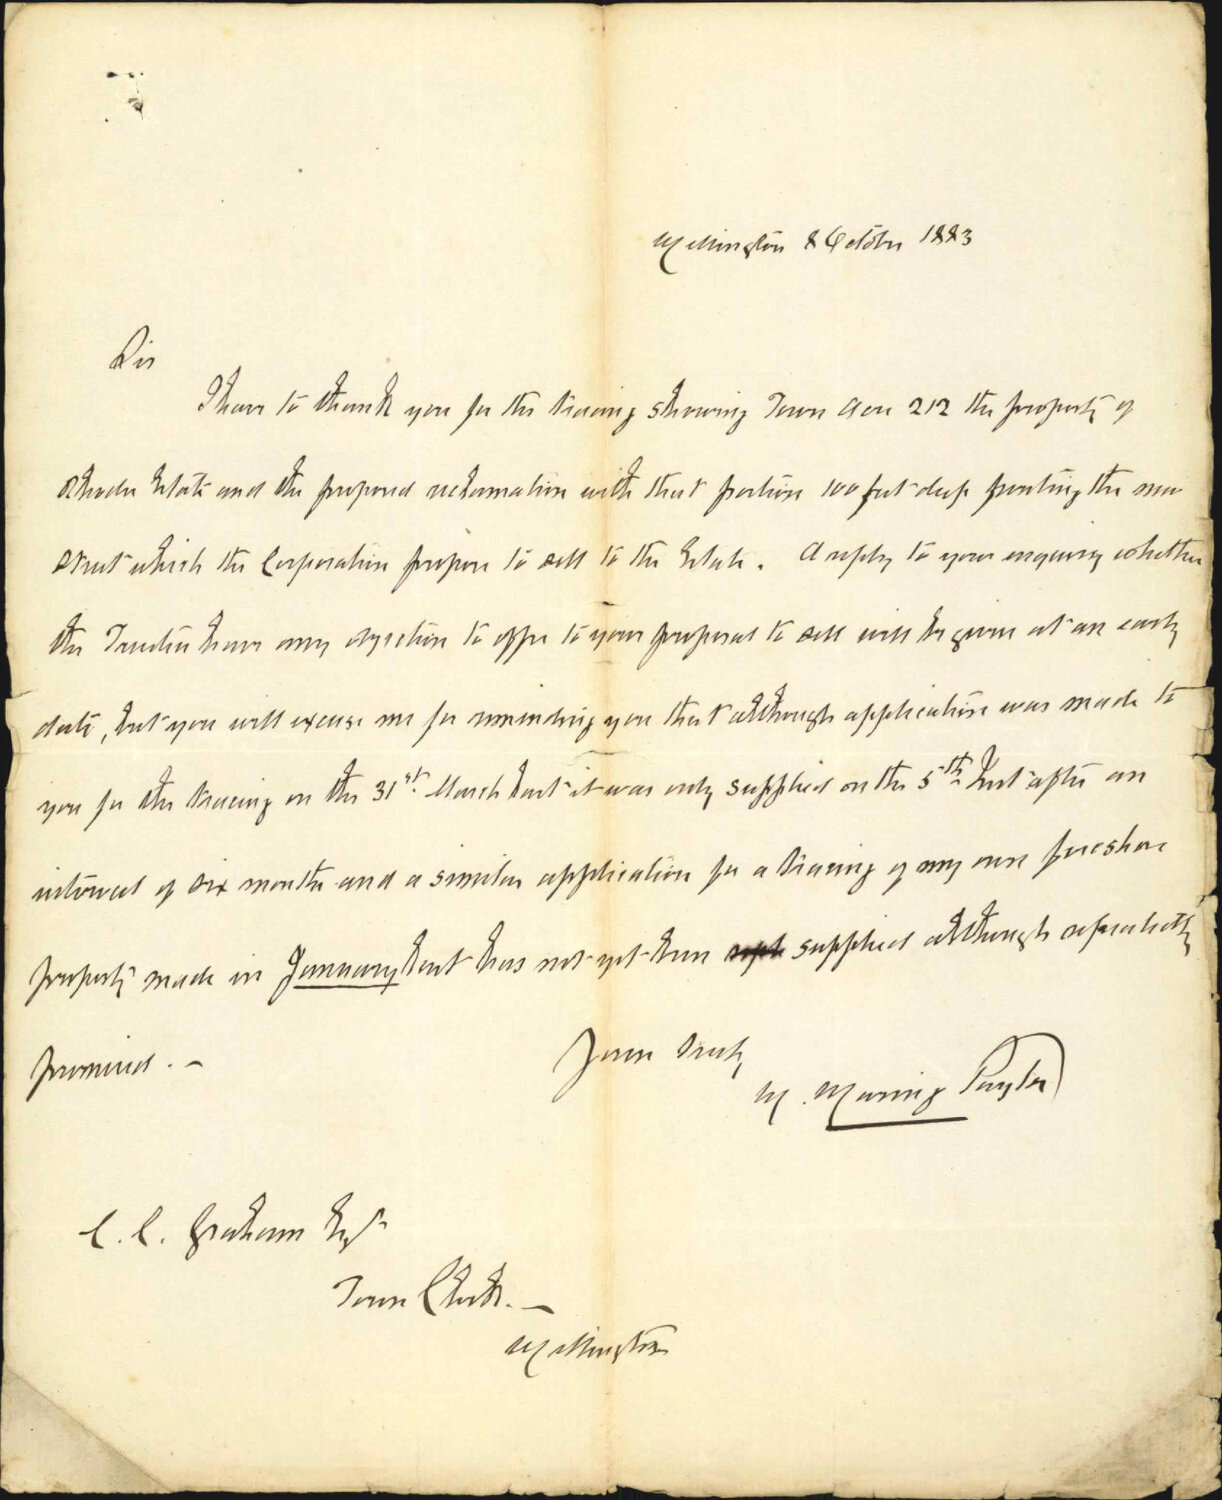 Wellington 8 October 1883
Sir
I have to thank you for the tracing showing Town Acre 212 the property of
Rhodes Estate and the proposed reclamation with that portion 100 feet deep fronting the new
street which the Corporation propose to sell to the Estate. A reply to your enquiry whether
the Trustees have any objection to offer to your proposal to sell will be given at an early
date, but you will excuse me for reminding you that although application was made to
you for the tracing on the 31st March but it was only supplied on the 5th Inst after an
interval of six months and a similar application for a tracing of my own foreshore
property made in January last has not yet been supplied although repeatedly
promised. —
Yours truly
W. Waring Taylor
C. C. Graham Esqr
Town Clerk. —
Wellington